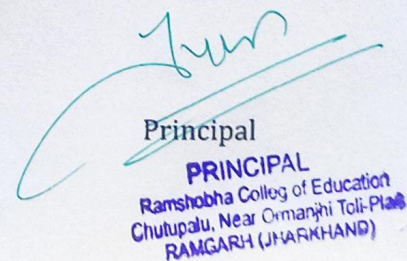 Principal
PRINCIPAL
Ramshobha Colleg of Education
Chutupalu, Near Ormanjhi Toli-Plaa
RAMGARH (JHARKHAND)